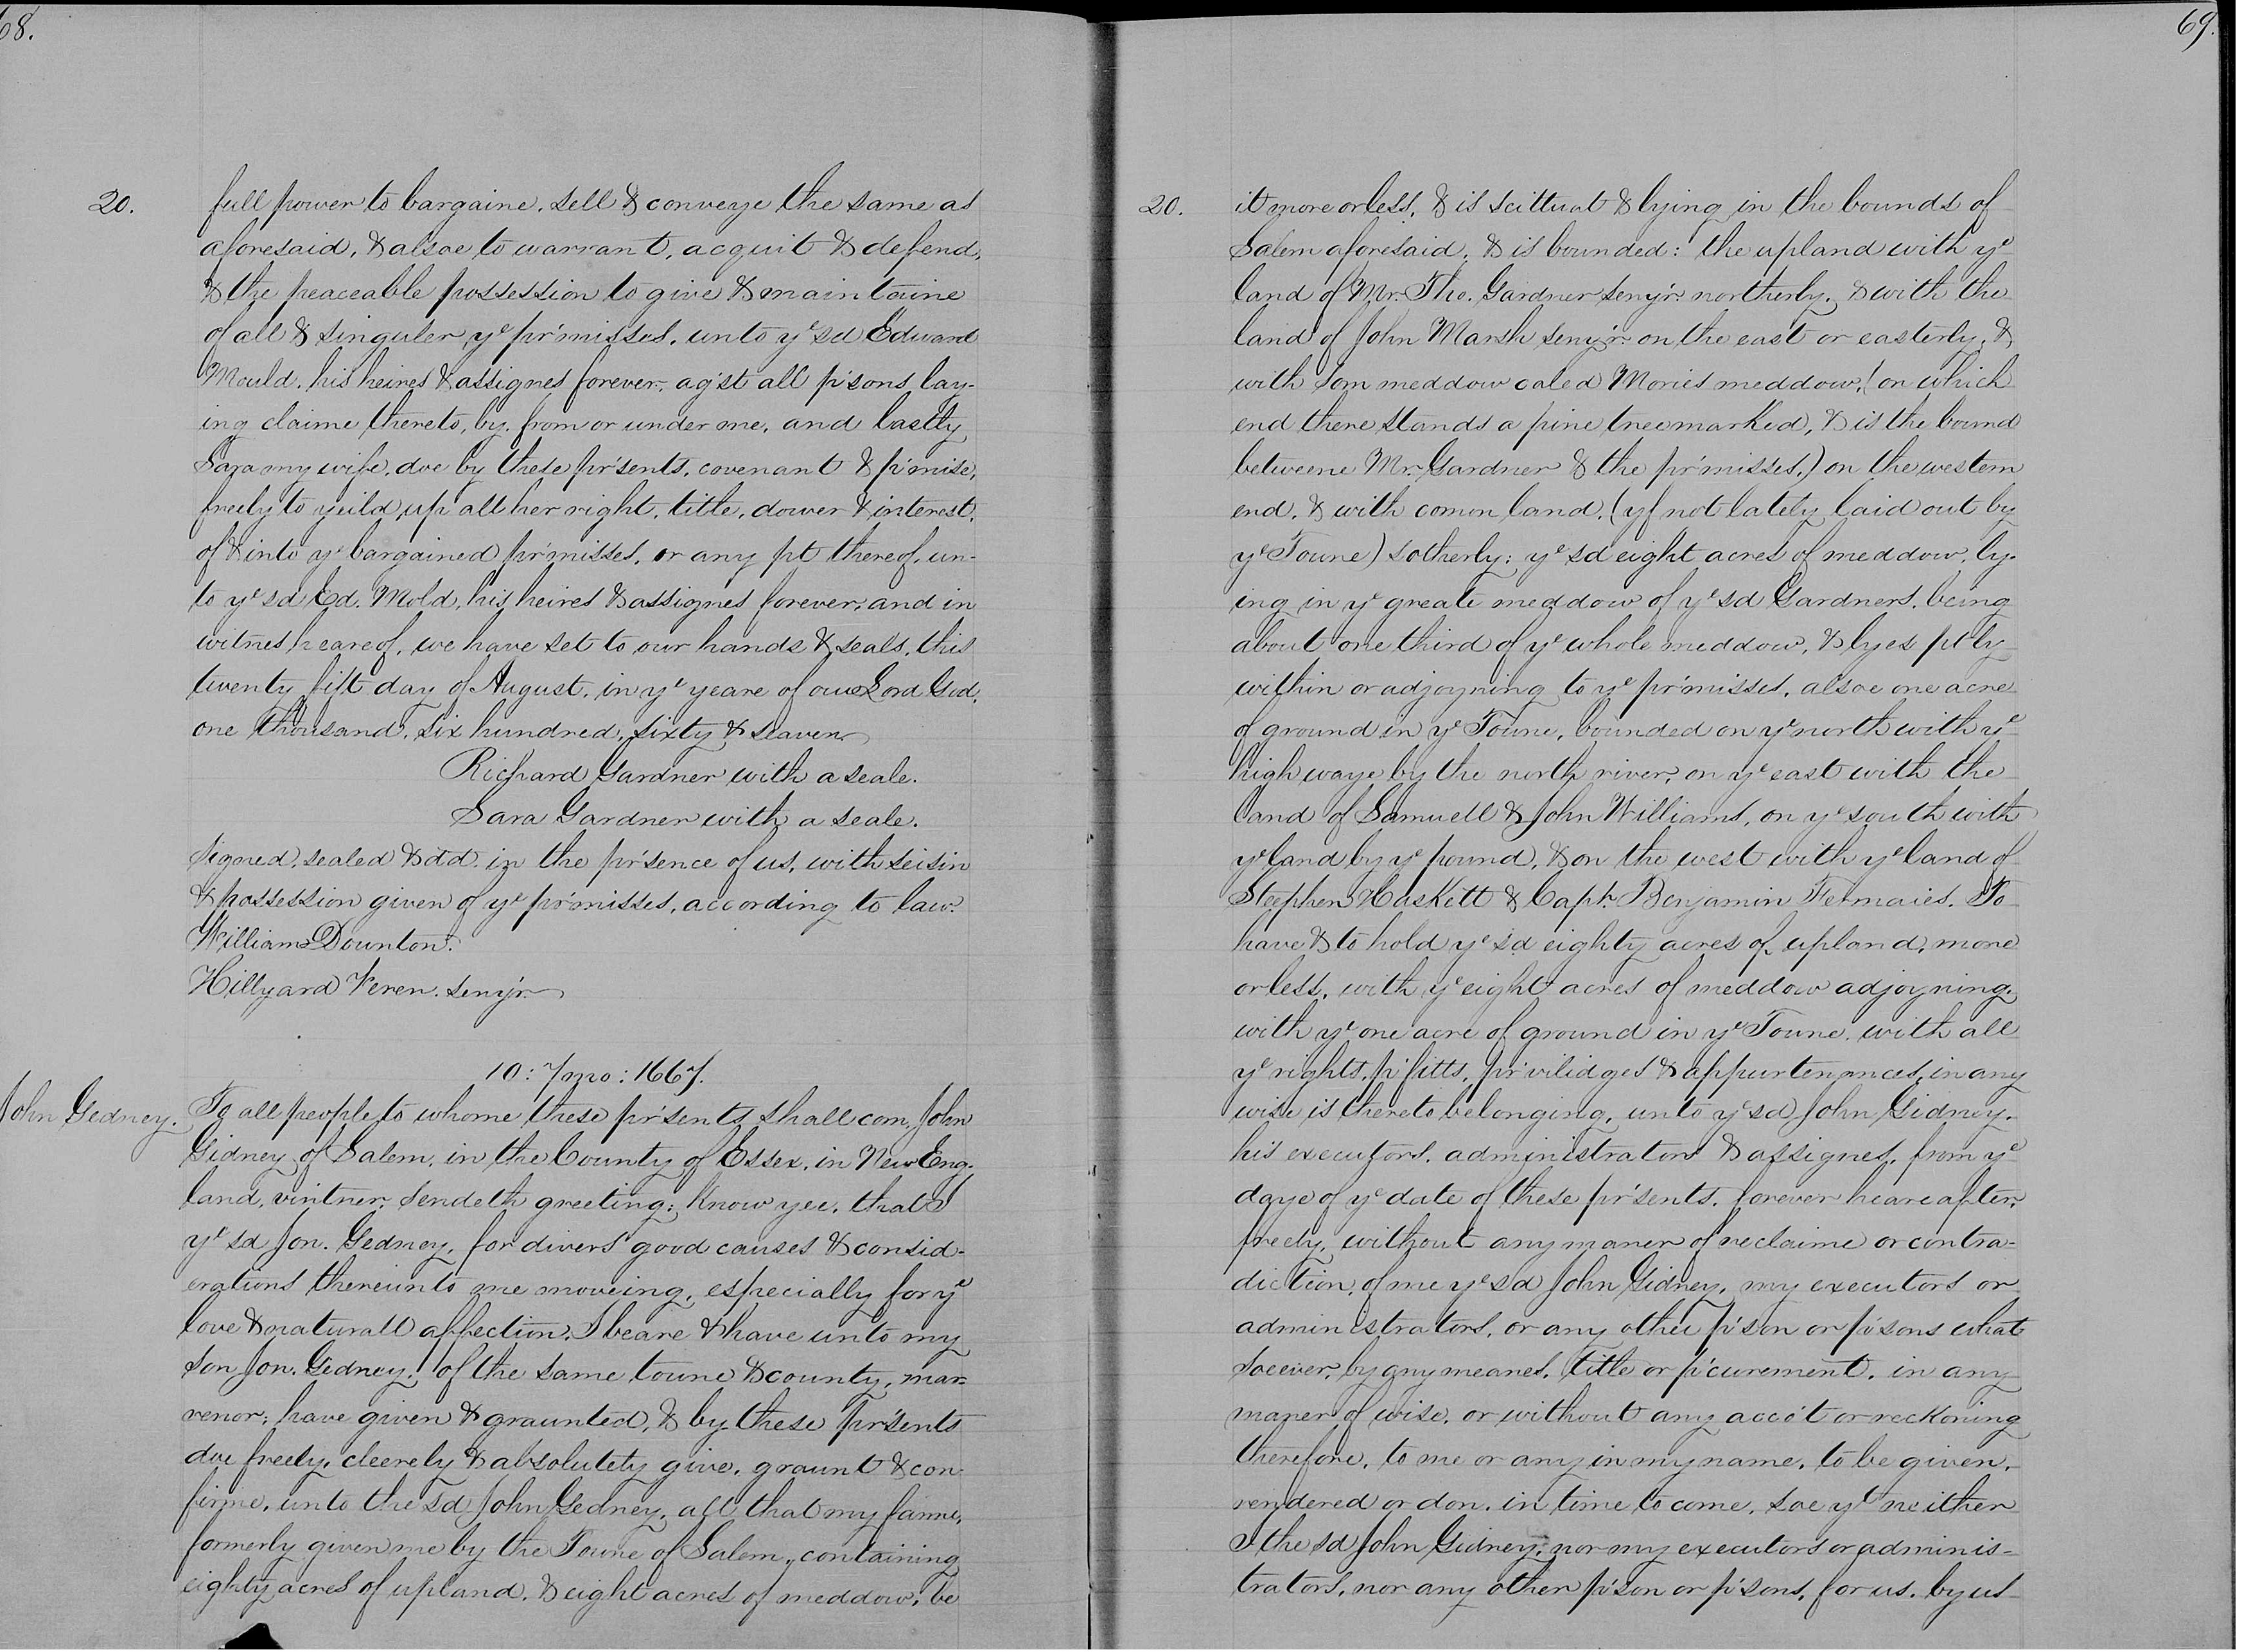 68.
20.
full power to bargaine, sell & conveye the same as
aforesaid, & alsoe to warrant, acquit & defend,
& the peaceable possession to give & maintaine
of all & singuler yͤ pr'misses, unto yͤ sd Edward
Mould, his heires & assignes forever, ag'st all p'sons lay-
ing claime thereto, by, from or under me, and lastly
Sara my wife, doe by these pr'sents, covenant & p'mise,
freely to yeild up all her right, title, dower & interest,
of & into yͤ bargained pr'misses, or any pt thereof, un-
to yͤ sd Ed. Mold, his heires & assignes forever, and in
witnes heareof, we have set to our hands & seals, this
twenty fift day of August, in yͤ yeare of our Lord God,
one thousand, six hundred, sixty & seaven
Richard Gardner with a seale.
Sara Gardner with a seale.
Signed, sealed & dd. in the pr'sence of us, with seisin
& possession given of yͤ pr'misses, according to law.
William Dounton.
Hillyard Veren. seny'r.
10 : 7mo : 1667.
John Gedney.
To all people to whome these pr'sents shall com, John
Gidney of Salem, in the County of Essex, in New Eng-
land, vintner, sendeth greeting; Know yee, that I
yͤ sd Jon. Gedney, for divers good causes & consid-
erations thereunto me moveing, especially for yͤ
love & naturall affection, I beare & have unto my
son Jon. Gedney, of the same towne & county, mar-
renor; have given & graunted, & by these pr'sents
doe freely, cleerely & absolutely give, graunt & con-
firme, unto the sd John Gedney, all that my farme,
formerly given me by the Towne of Salem, containing
eighty acres of upland, & eight acres of meddow, be
69.
20.
it more or less, & is scittuat & lying in the bounds of
Salem aforesaid, & is bounded: the upland with yͤ
land of Mr. Tho. Gardner seny'r. northerly, & with the
land of John Marsh seny'r. on the east or easterly, &
with som meddow caled Mories meddow, (on which
end there stands a pine tree marked, & is the bound
betweene Mr. Gardner & the pr'misses,) on the western
end, & with comon land, (yf not lately laid out by
yͤ Towne) sotherly; yͤ sd eight acres of meddow, ly-
ing in yͤ greate meddow of yͤ sd Gardners, being
about one third of yͤ whole meddow, & lyes ptly
within or adjoyning to yͤ pr'misses, alsoe one acre
of ground in yͤ Towne, bounded on yͤ north with yͤ
high waye by the north river, on yͤ east with the
land of Samuell & John Williams, on yͤ south with
yͤ land by yͤ pound, & on the west with yͤ land of
Steephen Haskett & Capt. Benjamin Fermaies. To
have & to hold yͤ sd eighty acres of upland, more
or less, with yͤ eight acres of meddow adjoyning,
with yͤ one acre of ground in yͤ Towne, with all
yͤ rights, p'fitts, pr'vilidges & appurtenances, in any
wise is thereto belonging, unto yͤ sd John Gidney,
his executors, administrators & assignes, from yͤ
daye of yͤ date of these pr'sents, forever heareafter,
freely, without any maner of reclaime or contra-
diction, of me yͤ sd John Gidney, my executors or
administrators, or any other p'son or p'sons what
soever, by any meanes, title or p'curement, in any
maner of wise, or without any acco't or reckoning
therefore, to me or any in my name, to be given,
rendered or don, in time to come, soe yͭ neither
I the sd John Gidney, nor my executors or adminis-
trators, nor any other p'son or p'sons, for us, by us